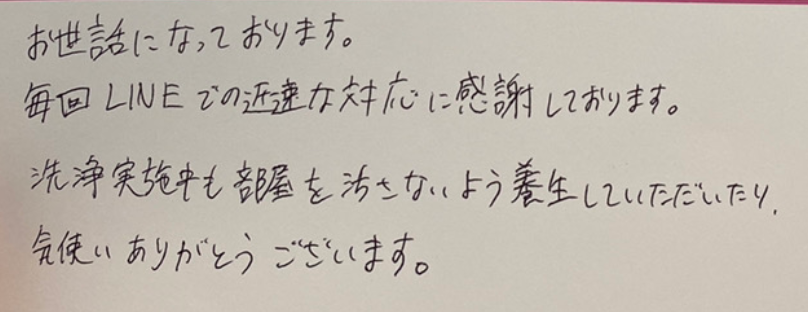 お世話になっております。
毎回LINEでの迅速な対応に感謝しております。
洗浄実施中も部屋を汚さないよう養生していただいたり、
気使いありがとうございます。